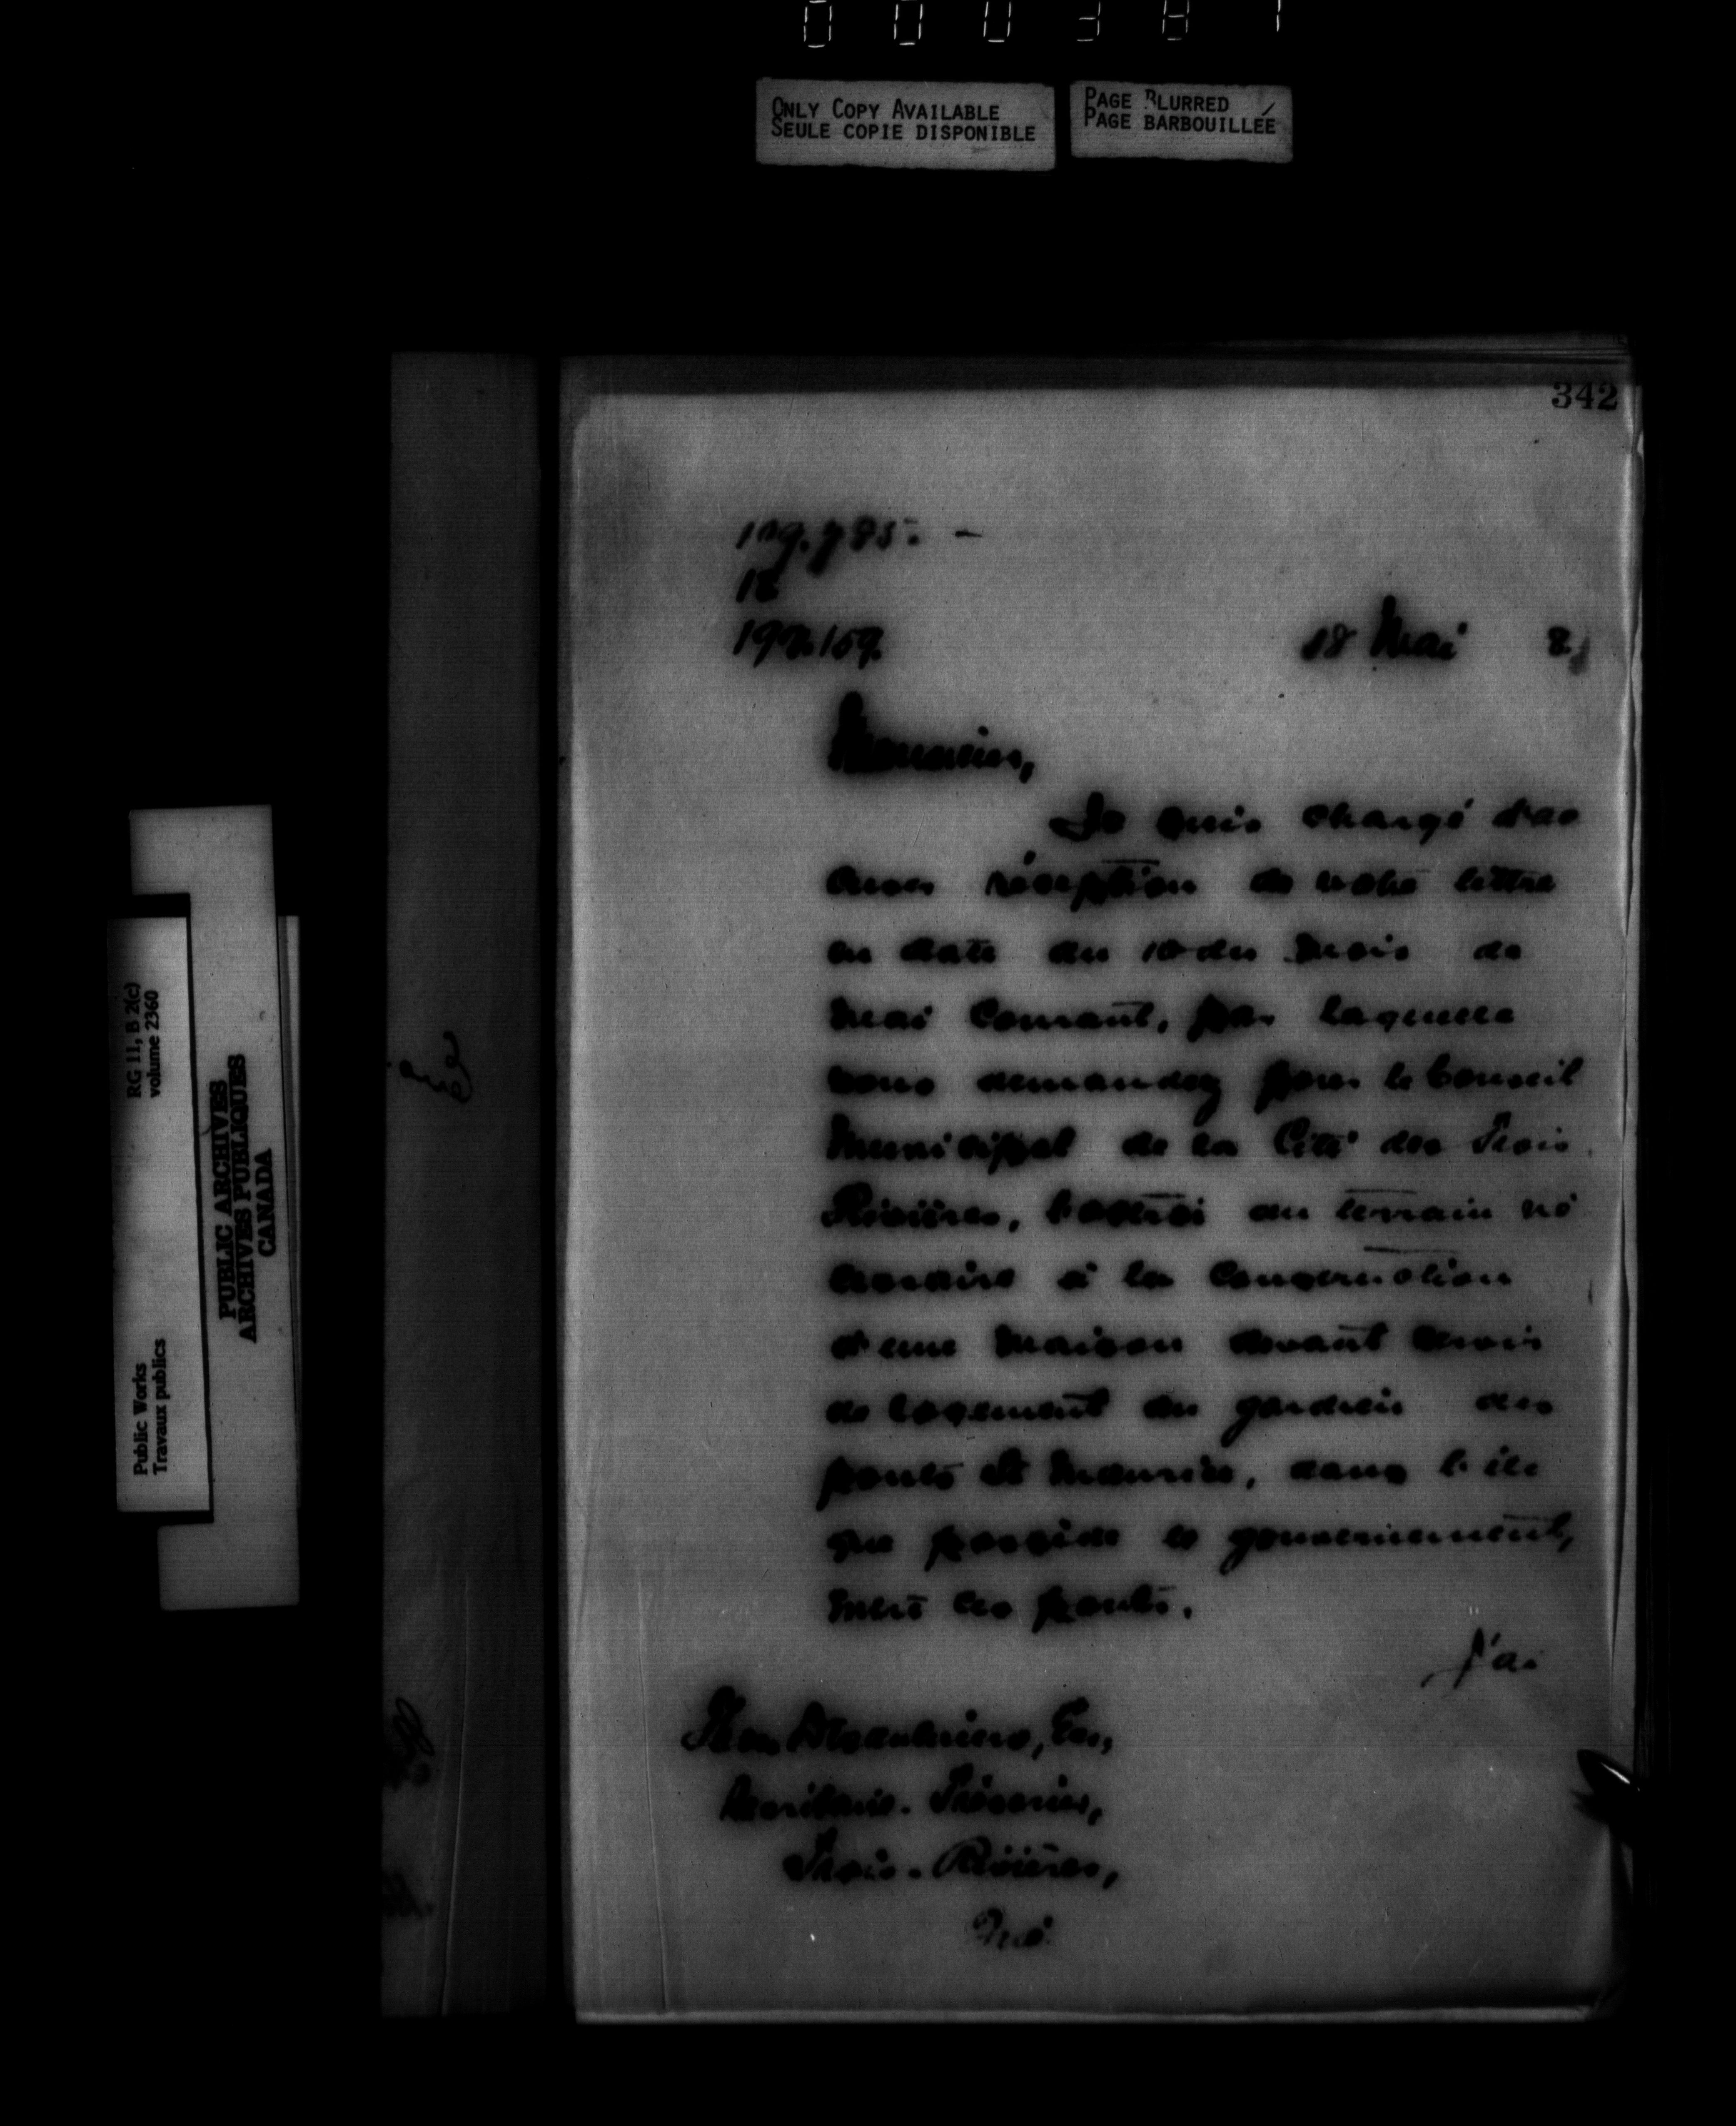 ONLY COPY AVAILABLE
SEULE COPIE DISPONIBLE
PAGE BLURRED
PAGE BARBOUILLÉE
342
18 Mai
Monsieur,
Je suis chargé d'ac
cuser réception de votre lettre
en date du 10 du mois de
Mai Courant, par laquelle
vous demandez pour le Conseil
Municipal de la Cité des Trois
Rivières, l'octroi du terrain né
cessaire à la Construction
d'une maison devant servir
de logement au gardien des
ponts St Maurice, dans l'île
que possède le gouvernement,
entre ces ponts.
J'ai
Esr,
Secrétaire-Trésorier,
Trois-Rivières,
RG 11, B 2(c)
volume 2360
Public Works
Travaux publics
PUBLIC ARCHIVES
ARCHIVES PUBLIQUES
CANADA